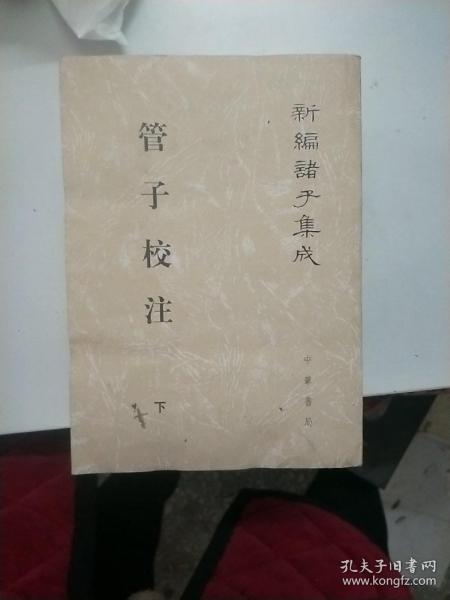 新編諸子集成
管子校注
下
中華書局
孔夫子旧书网
www.kongfz.com